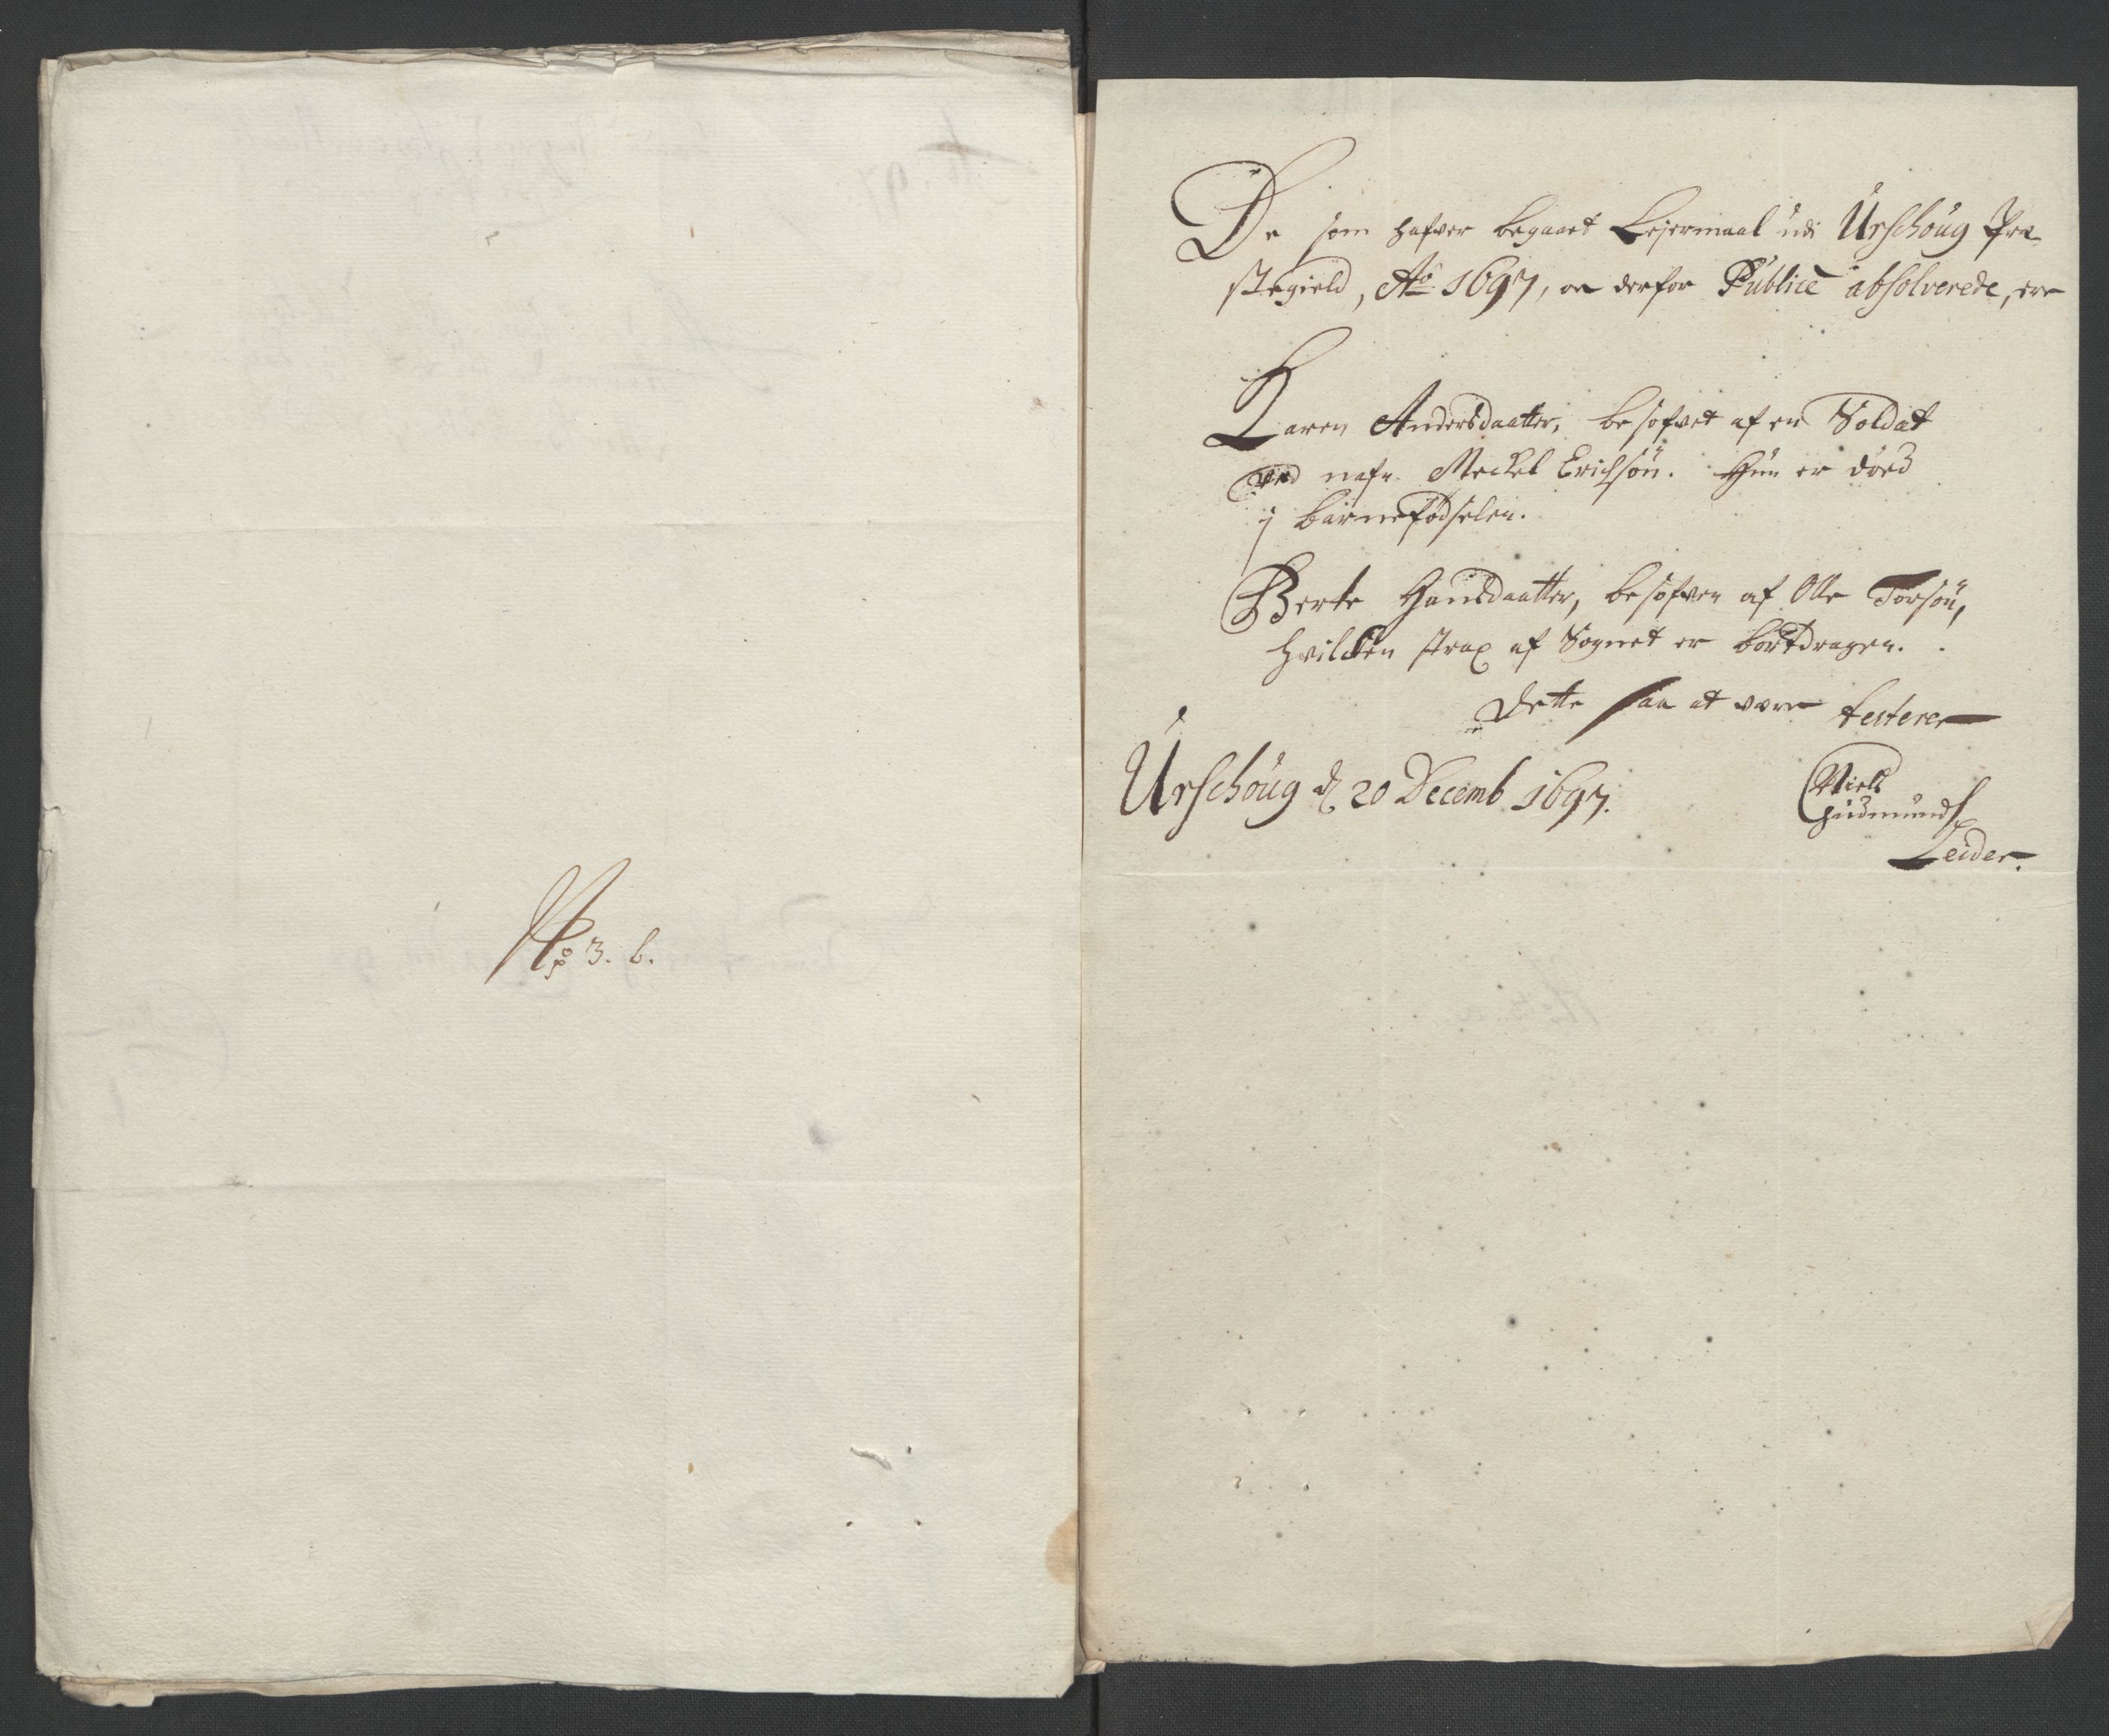 No 3. b.
De som hafver begaaet Lejermaal udi Urschoug Præ-
stegield, Ao 1697, oc derfor Publicè absolverede, ere
Karen Andersdaatter, besofvet af en Soldat
ved nafn Meckel Erichsøn. Hun er døed
i barnefødselen.
Berte Hansdaatter, besofven af Olle Torsøn,
hvilcken strax af Sognet er bortdragen.
Dette saa at være testerer
Urschoug d. 20 Decemb 1697.
Niels
Gudmunds
Leider.